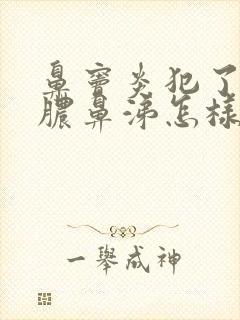 鼻窦炎犯了
脓鼻涕怎样
一舉成神